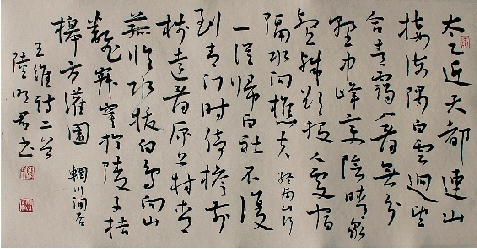 太乙近天都連山
接海隅白雲迴望
合青靄入看無分
野中峰變陰晴眾
壑殊欲投人處宿
隔水問樵夫 終南山行
一從歸白社不復
到青門時倚檐前
樹遠看原上村青
菰臨水拔白鳥向山
翻寂寞於陵子桔
槔方灌園 輞川閒居
王維詩二首
陸明君書